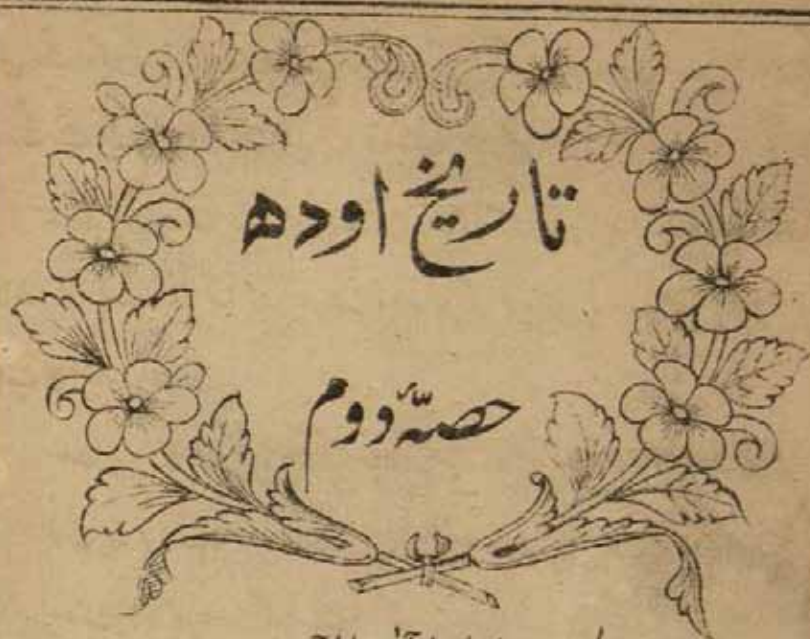 تاریخ اودھ
حصّۂ دوم